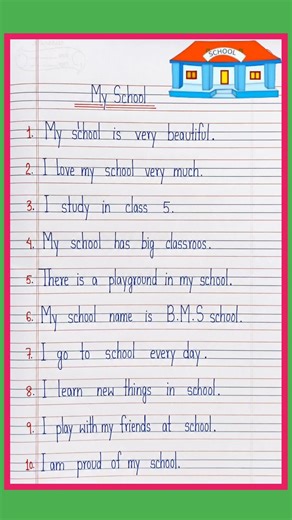 SCHOOL
My School
1. My school is very beautiful.
2. I love my school very much.
3. I study in class 5.
4. My school has big classroos.
5. There is a playground in my school.
6. My school name is B.M.S school.
7. I go to school every day.
8. I learn new things in school.
9. I play with my friends at school.
10. I am proud of my school.